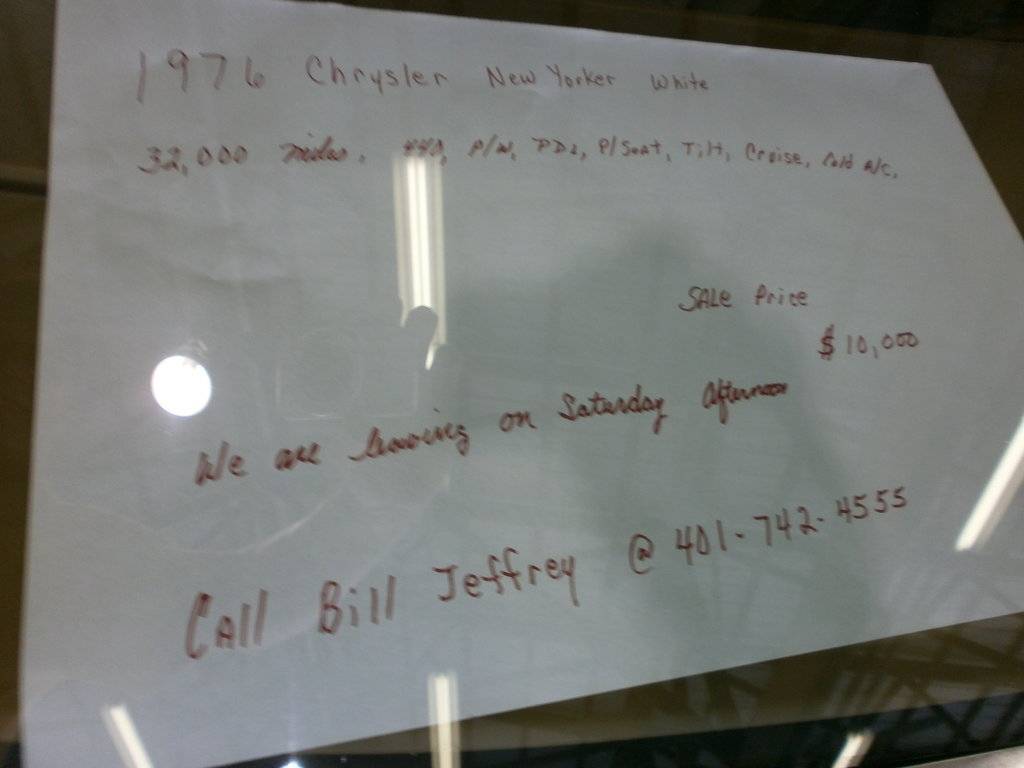 1976 Chrysler New Yorker White
32,000 miles. 440, P/W, PDL, P/Seat, Tilt, Cruise, Cold A/C.
SALE Price
$10,000
We are leaving on Saturday Afternoon
Call Bill Jeffrey @ 401-742-4555